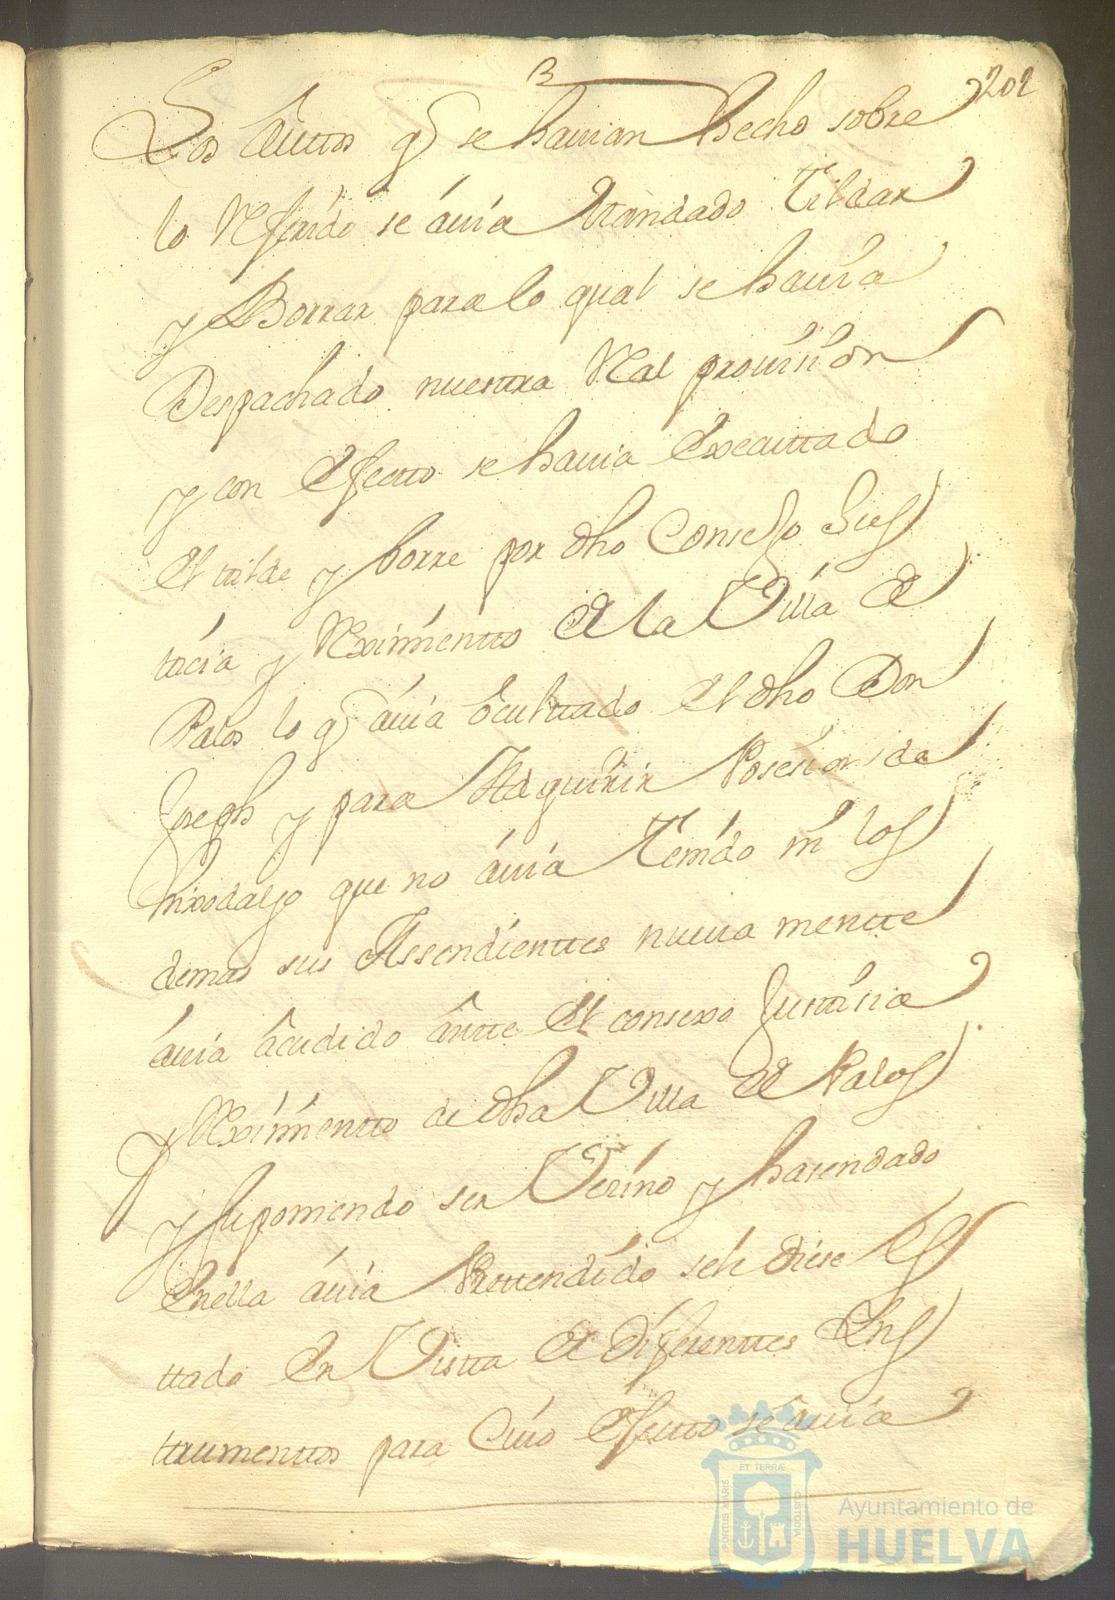 3
202
Los Auttos q se havian hecho sobre
lo Referido se avia Mandado Tildar
y Borrar para lo qual se havia
Despachado nuestra Real provision
y con efecto se havia Executtado
el tilde y borre por dho Consejo Jus
ticia y Reximientto de la Villa de
Palos lo q avia ocultado el dho Don
Joseph y para Adquirir Posesion de
hixodalgo que no avia Tenido ni los
demas sus Assendienttes nueva mentte
avia acudido antte el consexo Justicia
y Reximientto de dha Villa de Palos
y suponiendo ser Vecino y hasendado
Enella avia Prettendido sele diese Es
ttado En Vistta de diferenttes Ins
trumenttos para Cuio Efectto se avia
PORTUS MARIS
ET TERRÆ
CUSTODIA
Ayuntamiento de
HUELVA